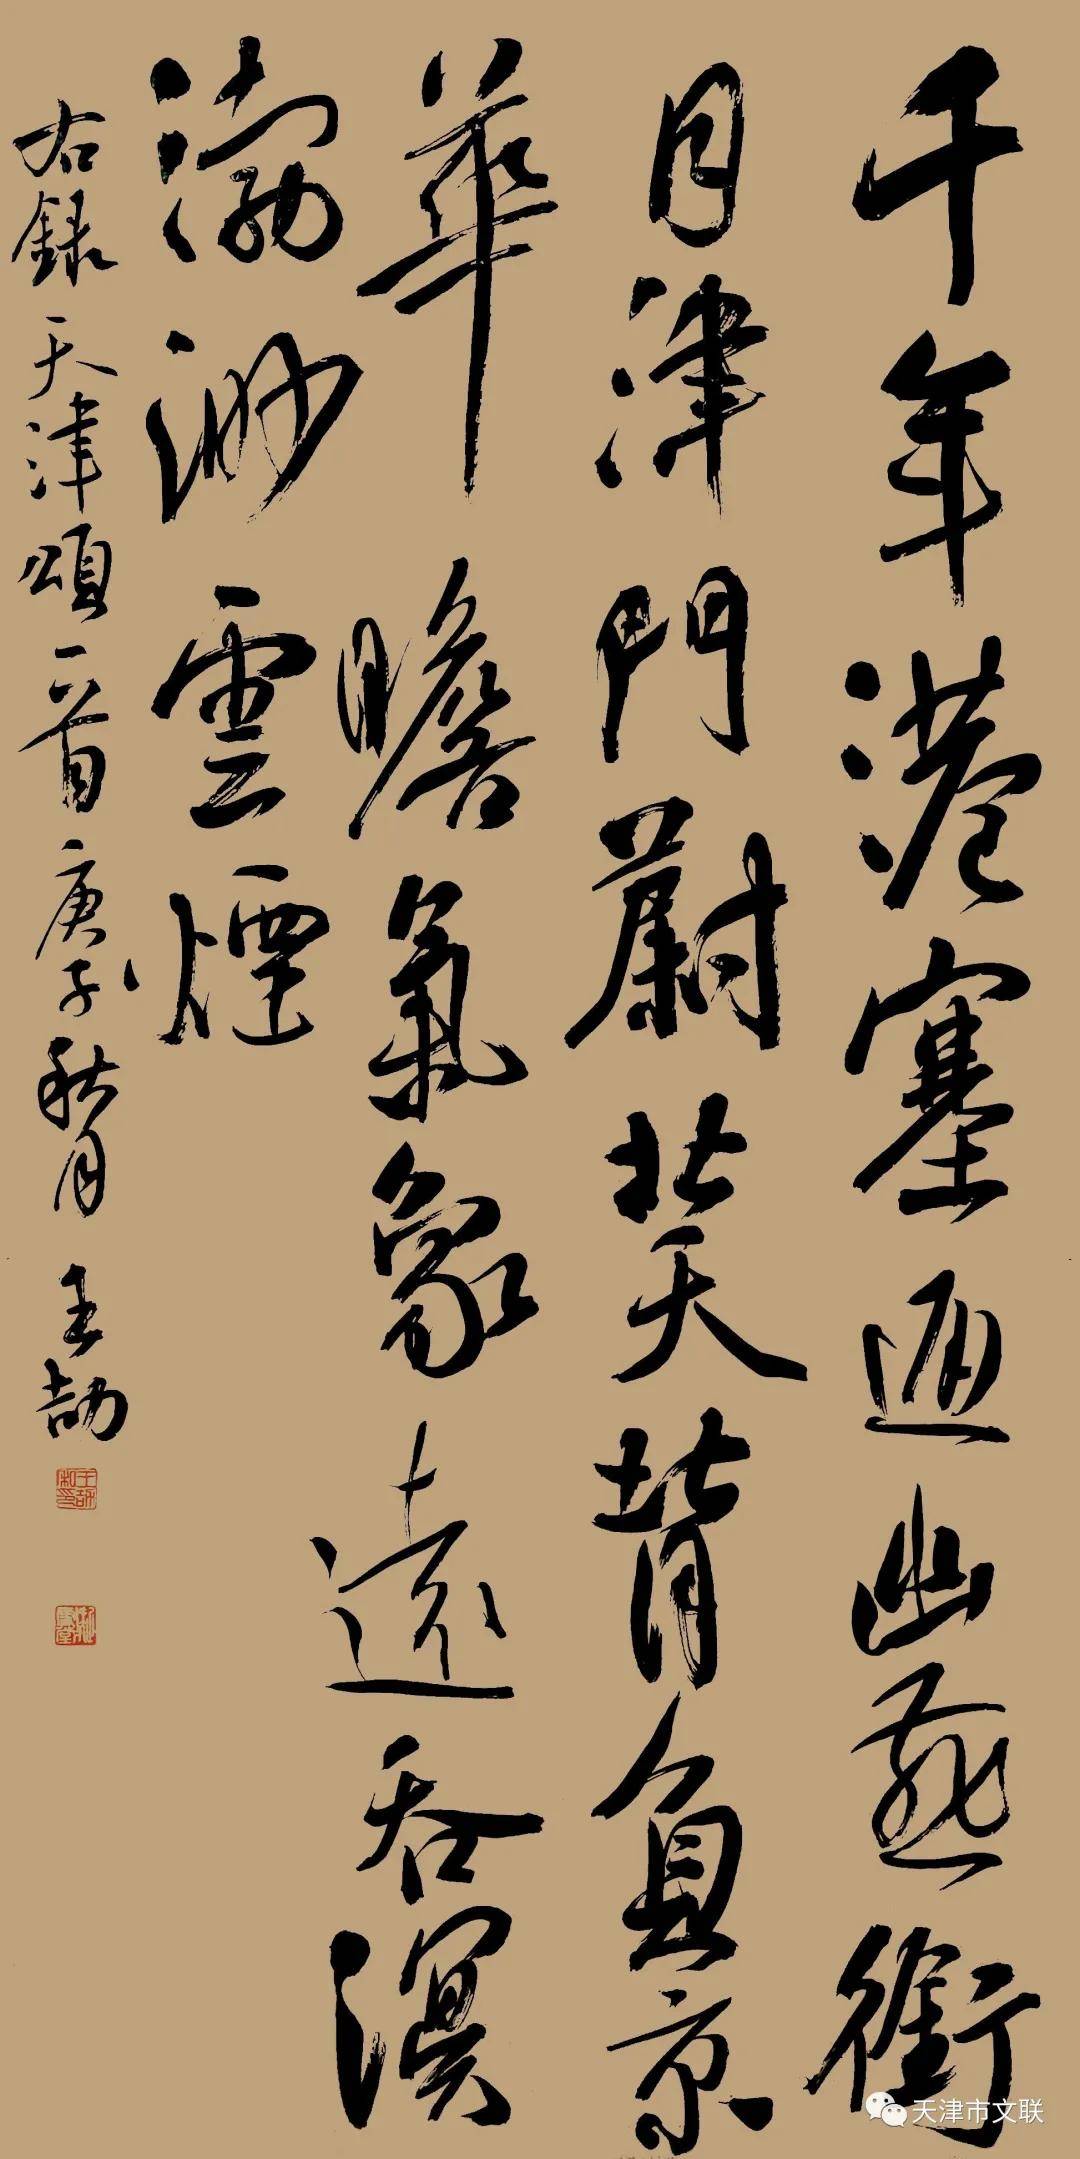 千年港塞通幽燕銜
月津門蔚焚天背負京
華瞻氣象遠吞溟
渤渺雲煙
右錄天津頌一首庚子秋月 王劼
天津市文联